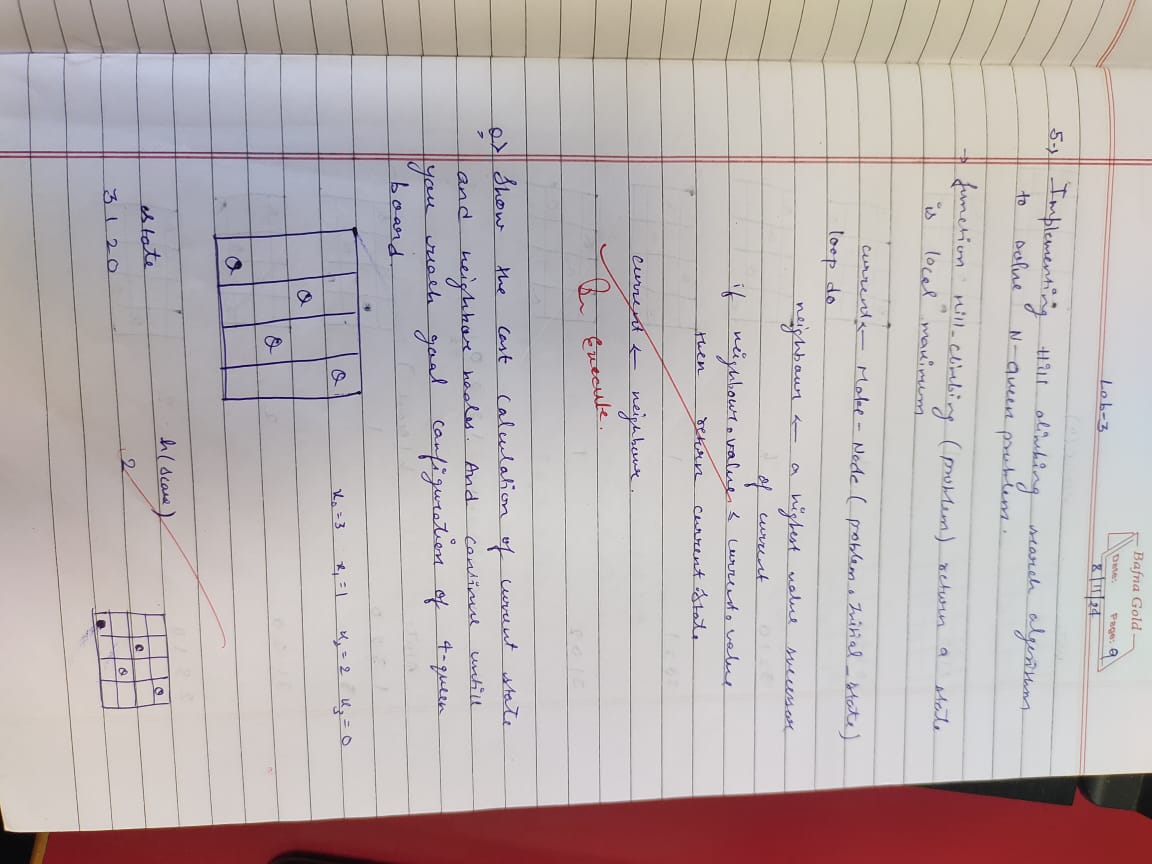 Bafna Gold
Date: Page: 9
8/11/24
Lab-3
5→ Implementing Hill climbing search algorithm
to solve N-queen problem.
→ function Hill-climbing (problem) return a state
is local maximum
current ← Make-Node (problem.Initial_state)
loop do
neighbour ← a highest value successor
of current
if neighbour.value ≤ current.value
then return current.state
current ← neighbour.
Execute.
Q> Show the cost calculation of current state
and neighbor nodes. And continue untill
you reach goal configuration of 4-queen
board.
Q
Q
Q
Q
x₀=3 x₁=1 x₂=2 x₃=0
state h(score)
3 1 2 0 2